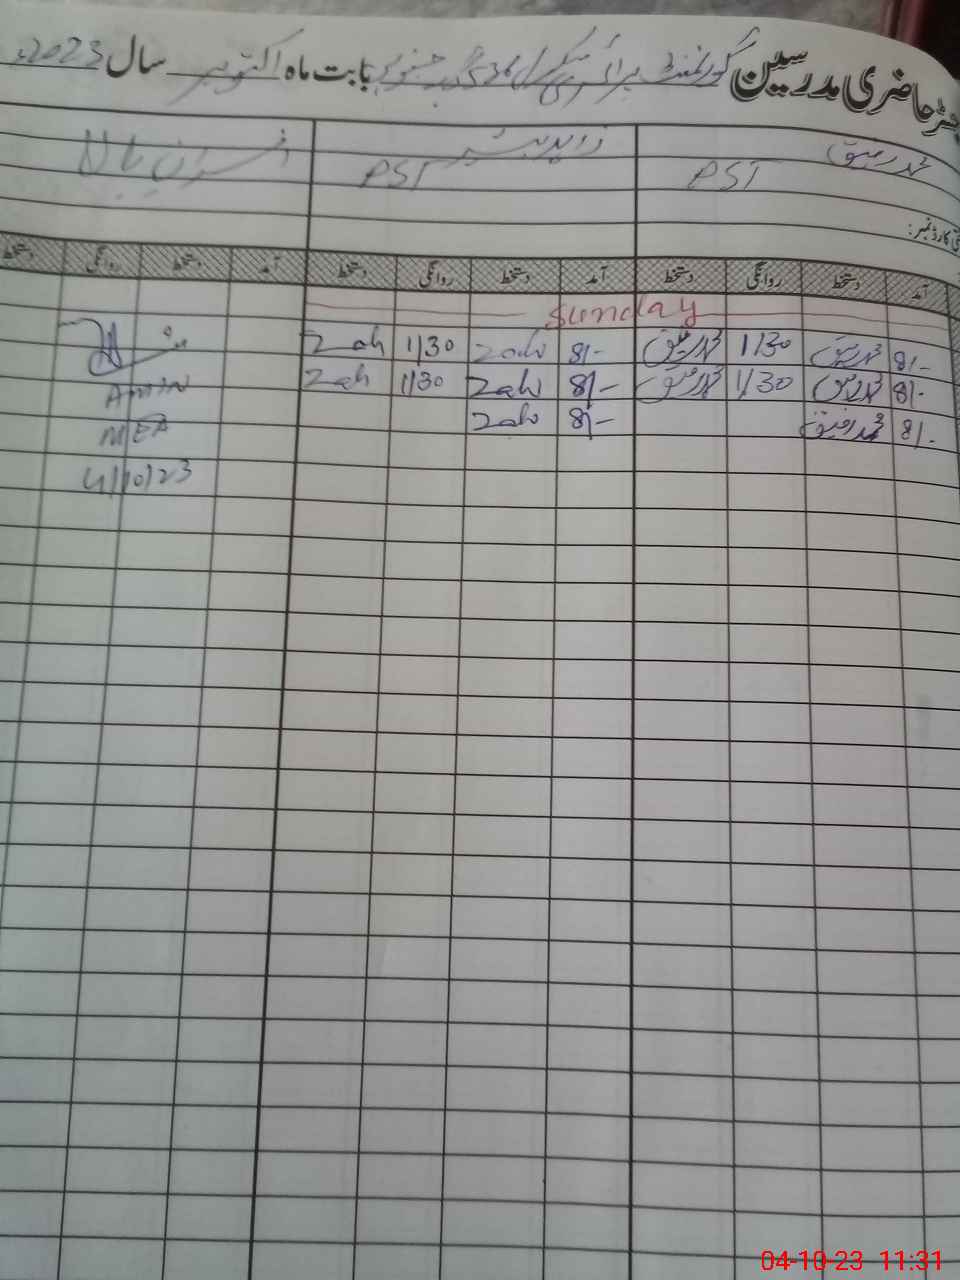 رجسٹر حاضری مدرسین گورنمنٹ پرائمری سکول بابت ماہ اکتوبر سال 2023ء
محمد رفیق زاہد بشیر افسران بالا
PST PST
آمد دستخط روانگی دستخط آمد دستخط روانگی دستخط آمد دستخط روانگی دستخط
Sunday
8/- محمد رفیق 1/30 محمد رفیق 8/- Zah 1/30 Zah
8/- محمد رفیق 1/30 محمد رفیق 8/- Zah 1/30 Zah
8/- محمد رفیق 8/- Zah
AMIN
MEA
4/10/23
04-10-23 11:31